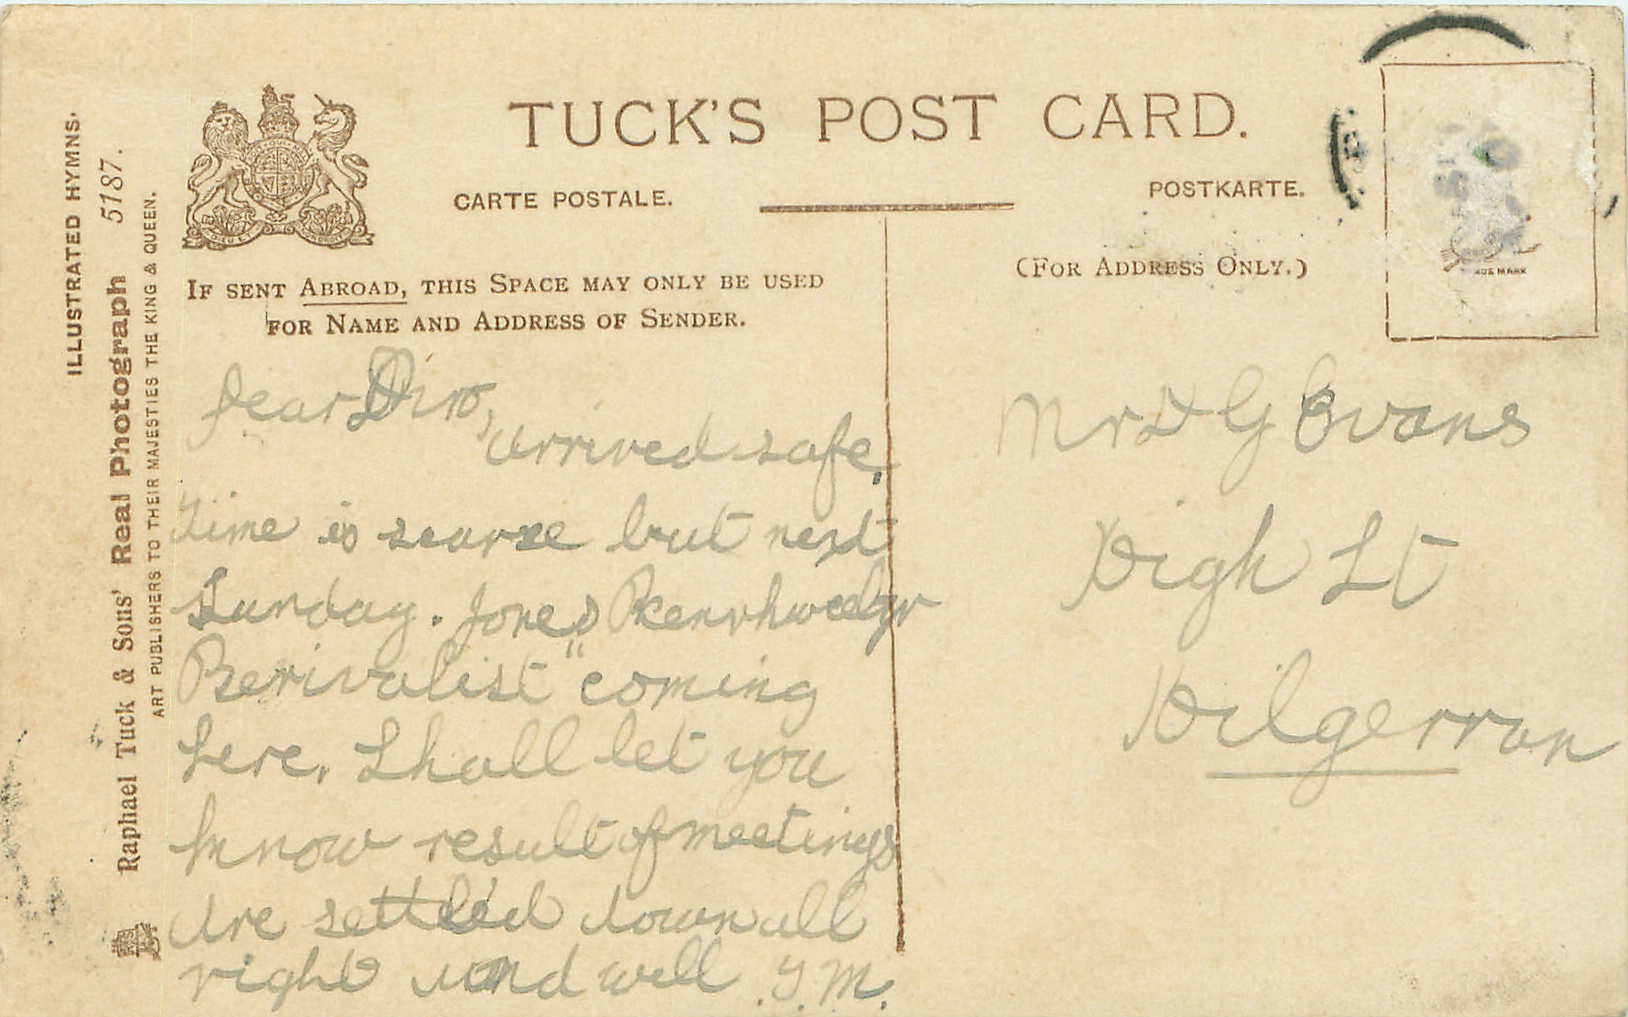 ILLUSTRATED HYMNS.
Raphael Tuck & Sons' Real Photograph 5187.
ART PUBLISHERS TO THEIR MAJESTIES THE KING & QUEEN.
TUCK'S POST CARD.
CARTE POSTALE.
POSTKARTE.
(FOR ADDRESS ONLY.)
IF SENT ABROAD, THIS SPACE MAY ONLY BE USED
FOR NAME AND ADDRESS OF SENDER.
MARK
Dear
arrived safe,
Time is scarse but next
Sunday. Jones
Revivalist" coming
here. Shall let you
know result of meetings
Are settled down all
right and well Y. M.
Mr D G Evans
High St
Kilgerran